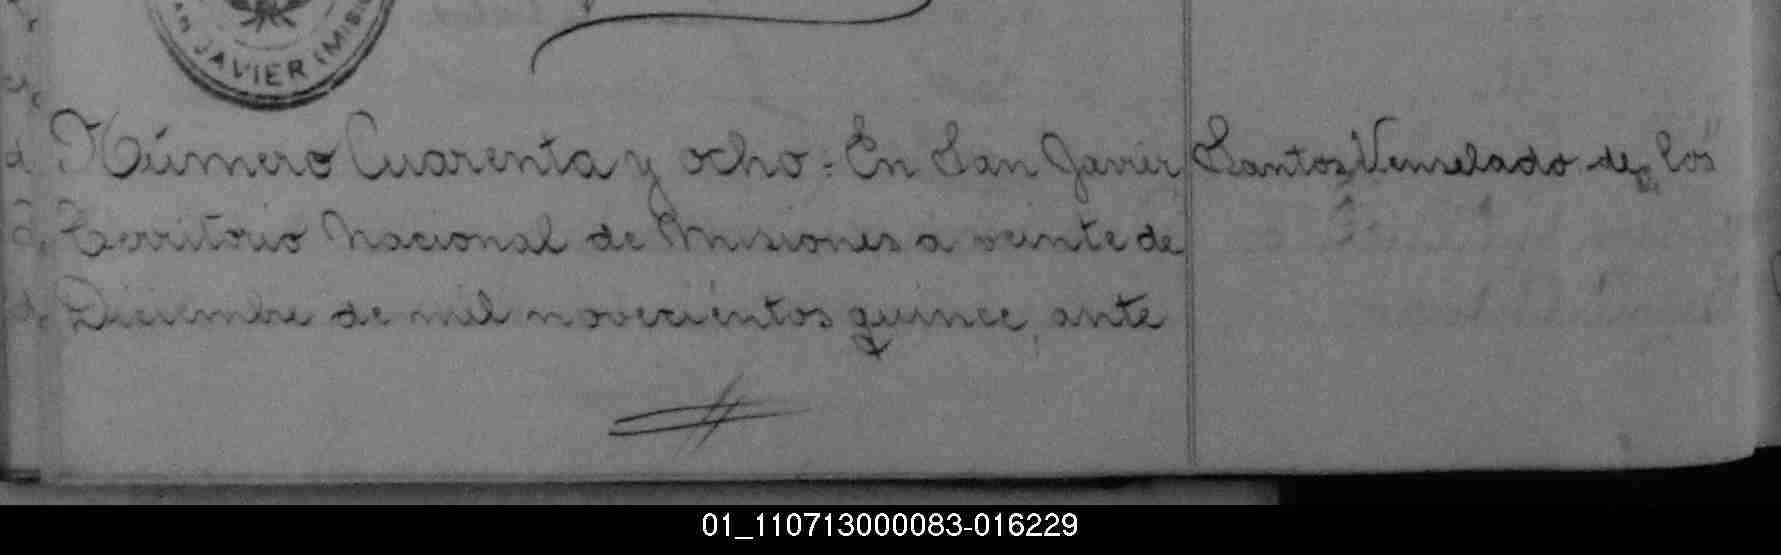 SAN JAVIER (MISI
Número Cuarenta y ocho: En San Javier
Territorio Nacional de Misiones a veinte de
Diciembre de mil novecientos quince ante
Santos Venselado de los
01_110713000083-016229